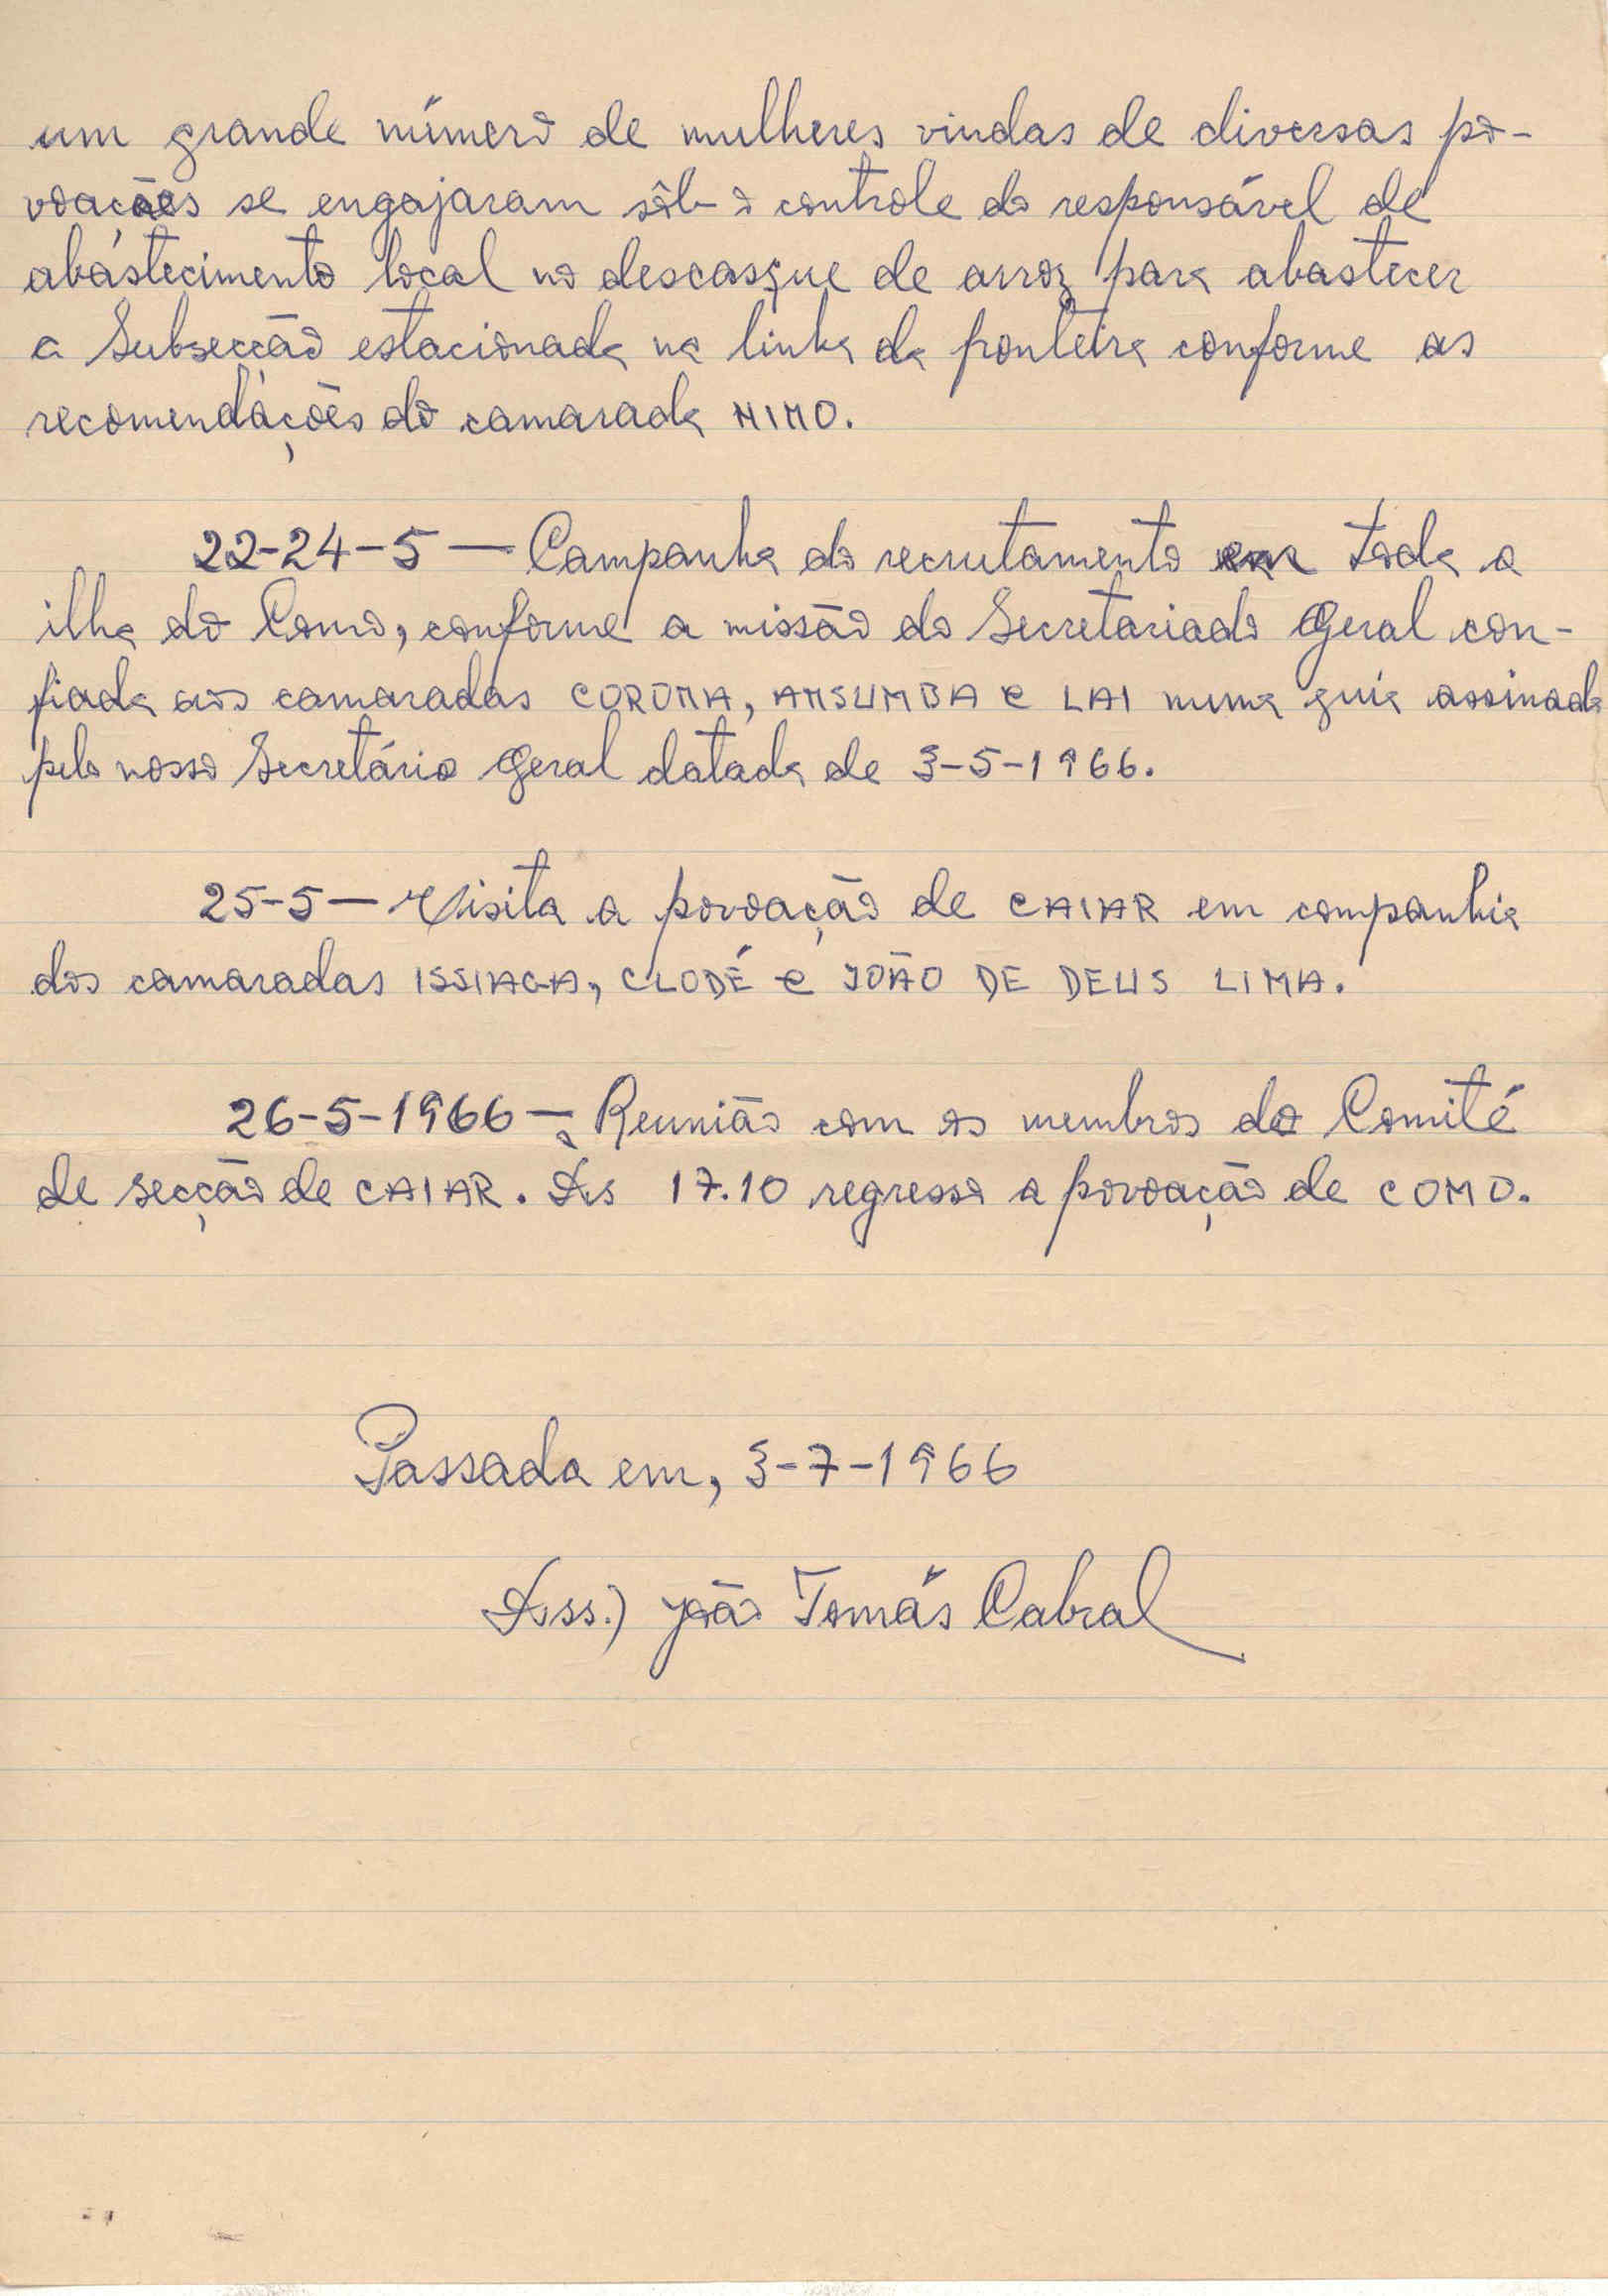 um grande número de mulheres vindas de diversas po-
voações se engajaram sôb o controle do responsável de
abastecimento local no descasque de arroz para abastecer
a Subsecção estacionada na linha da fronteira conforme as
recomendações do camarada NINO.
22-24-5 — Campanha do recrutamento em toda a
ilha do Como, conforme a missão do Secretariado Geral con-
fiada aos camaradas COROMA, ANSUMBA e LAI numa guia assinada
pelo nosso Secretário Geral datada de 3-5-1966.
25-5 — Visita a povoação de CAIAR em companhia
dos camaradas ISSIAGA, CLODÉ e JOÃO DE DEUS LIMA.
26-5-1966 — Reunião com os membros do Comité
de secção de CAIAR. Às 17.10 regresso a povoação de COMO.
Passada em, 3-7-1966
Ass.) João Tomás Cabral